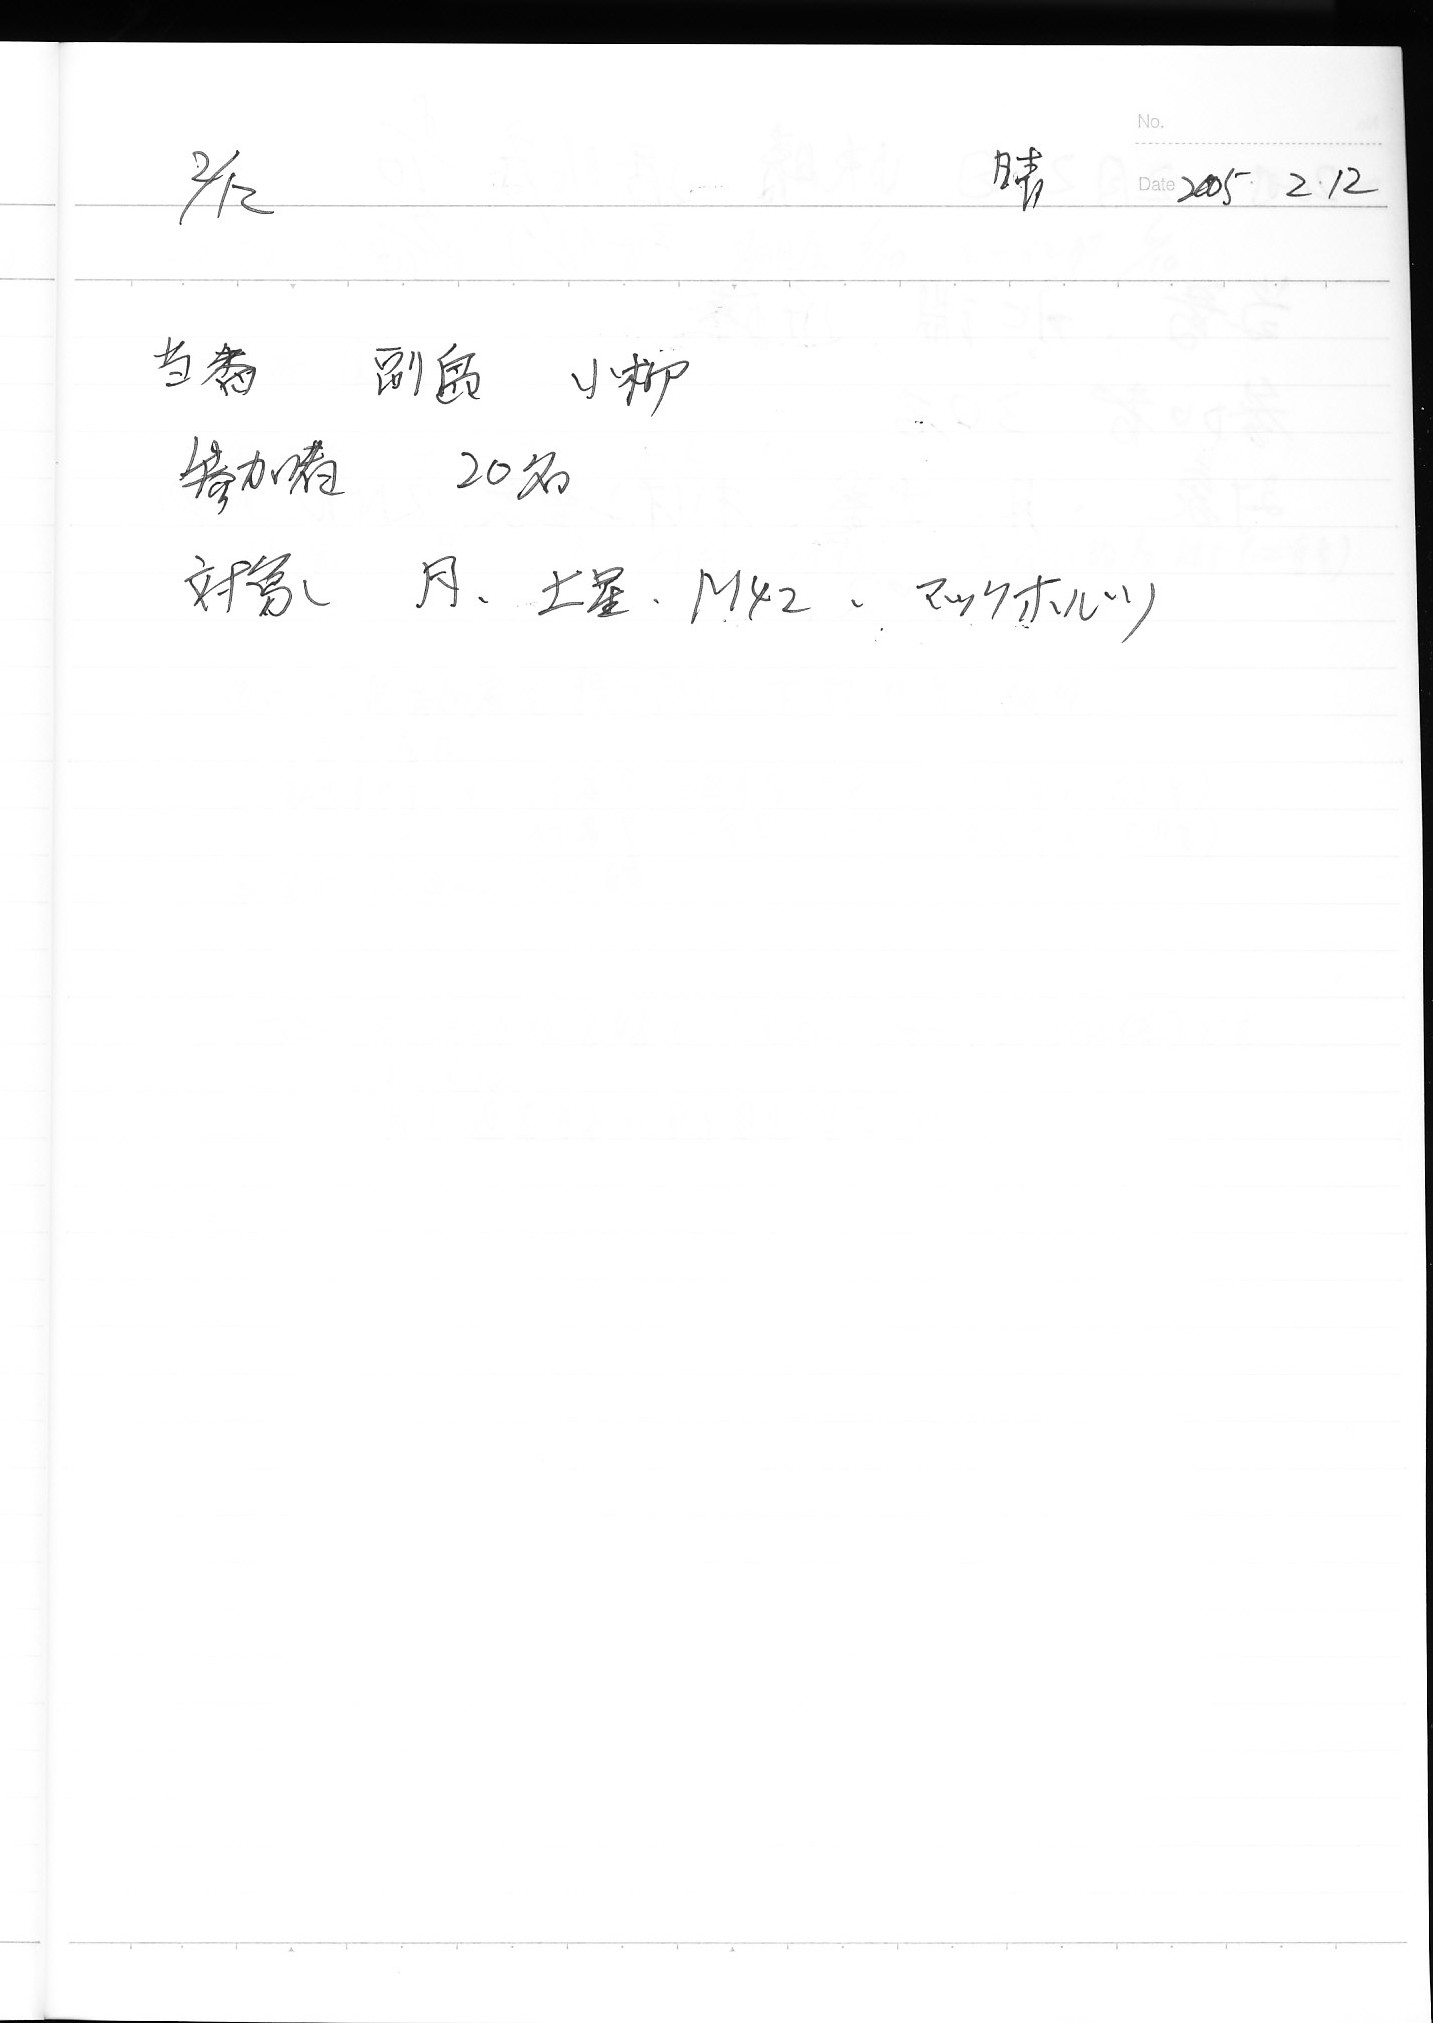 No.
2/12 晴 Date 2005 2.12
当番 副島 小柳
参加者 20名
対象 月、土星、M42、マックホルツ